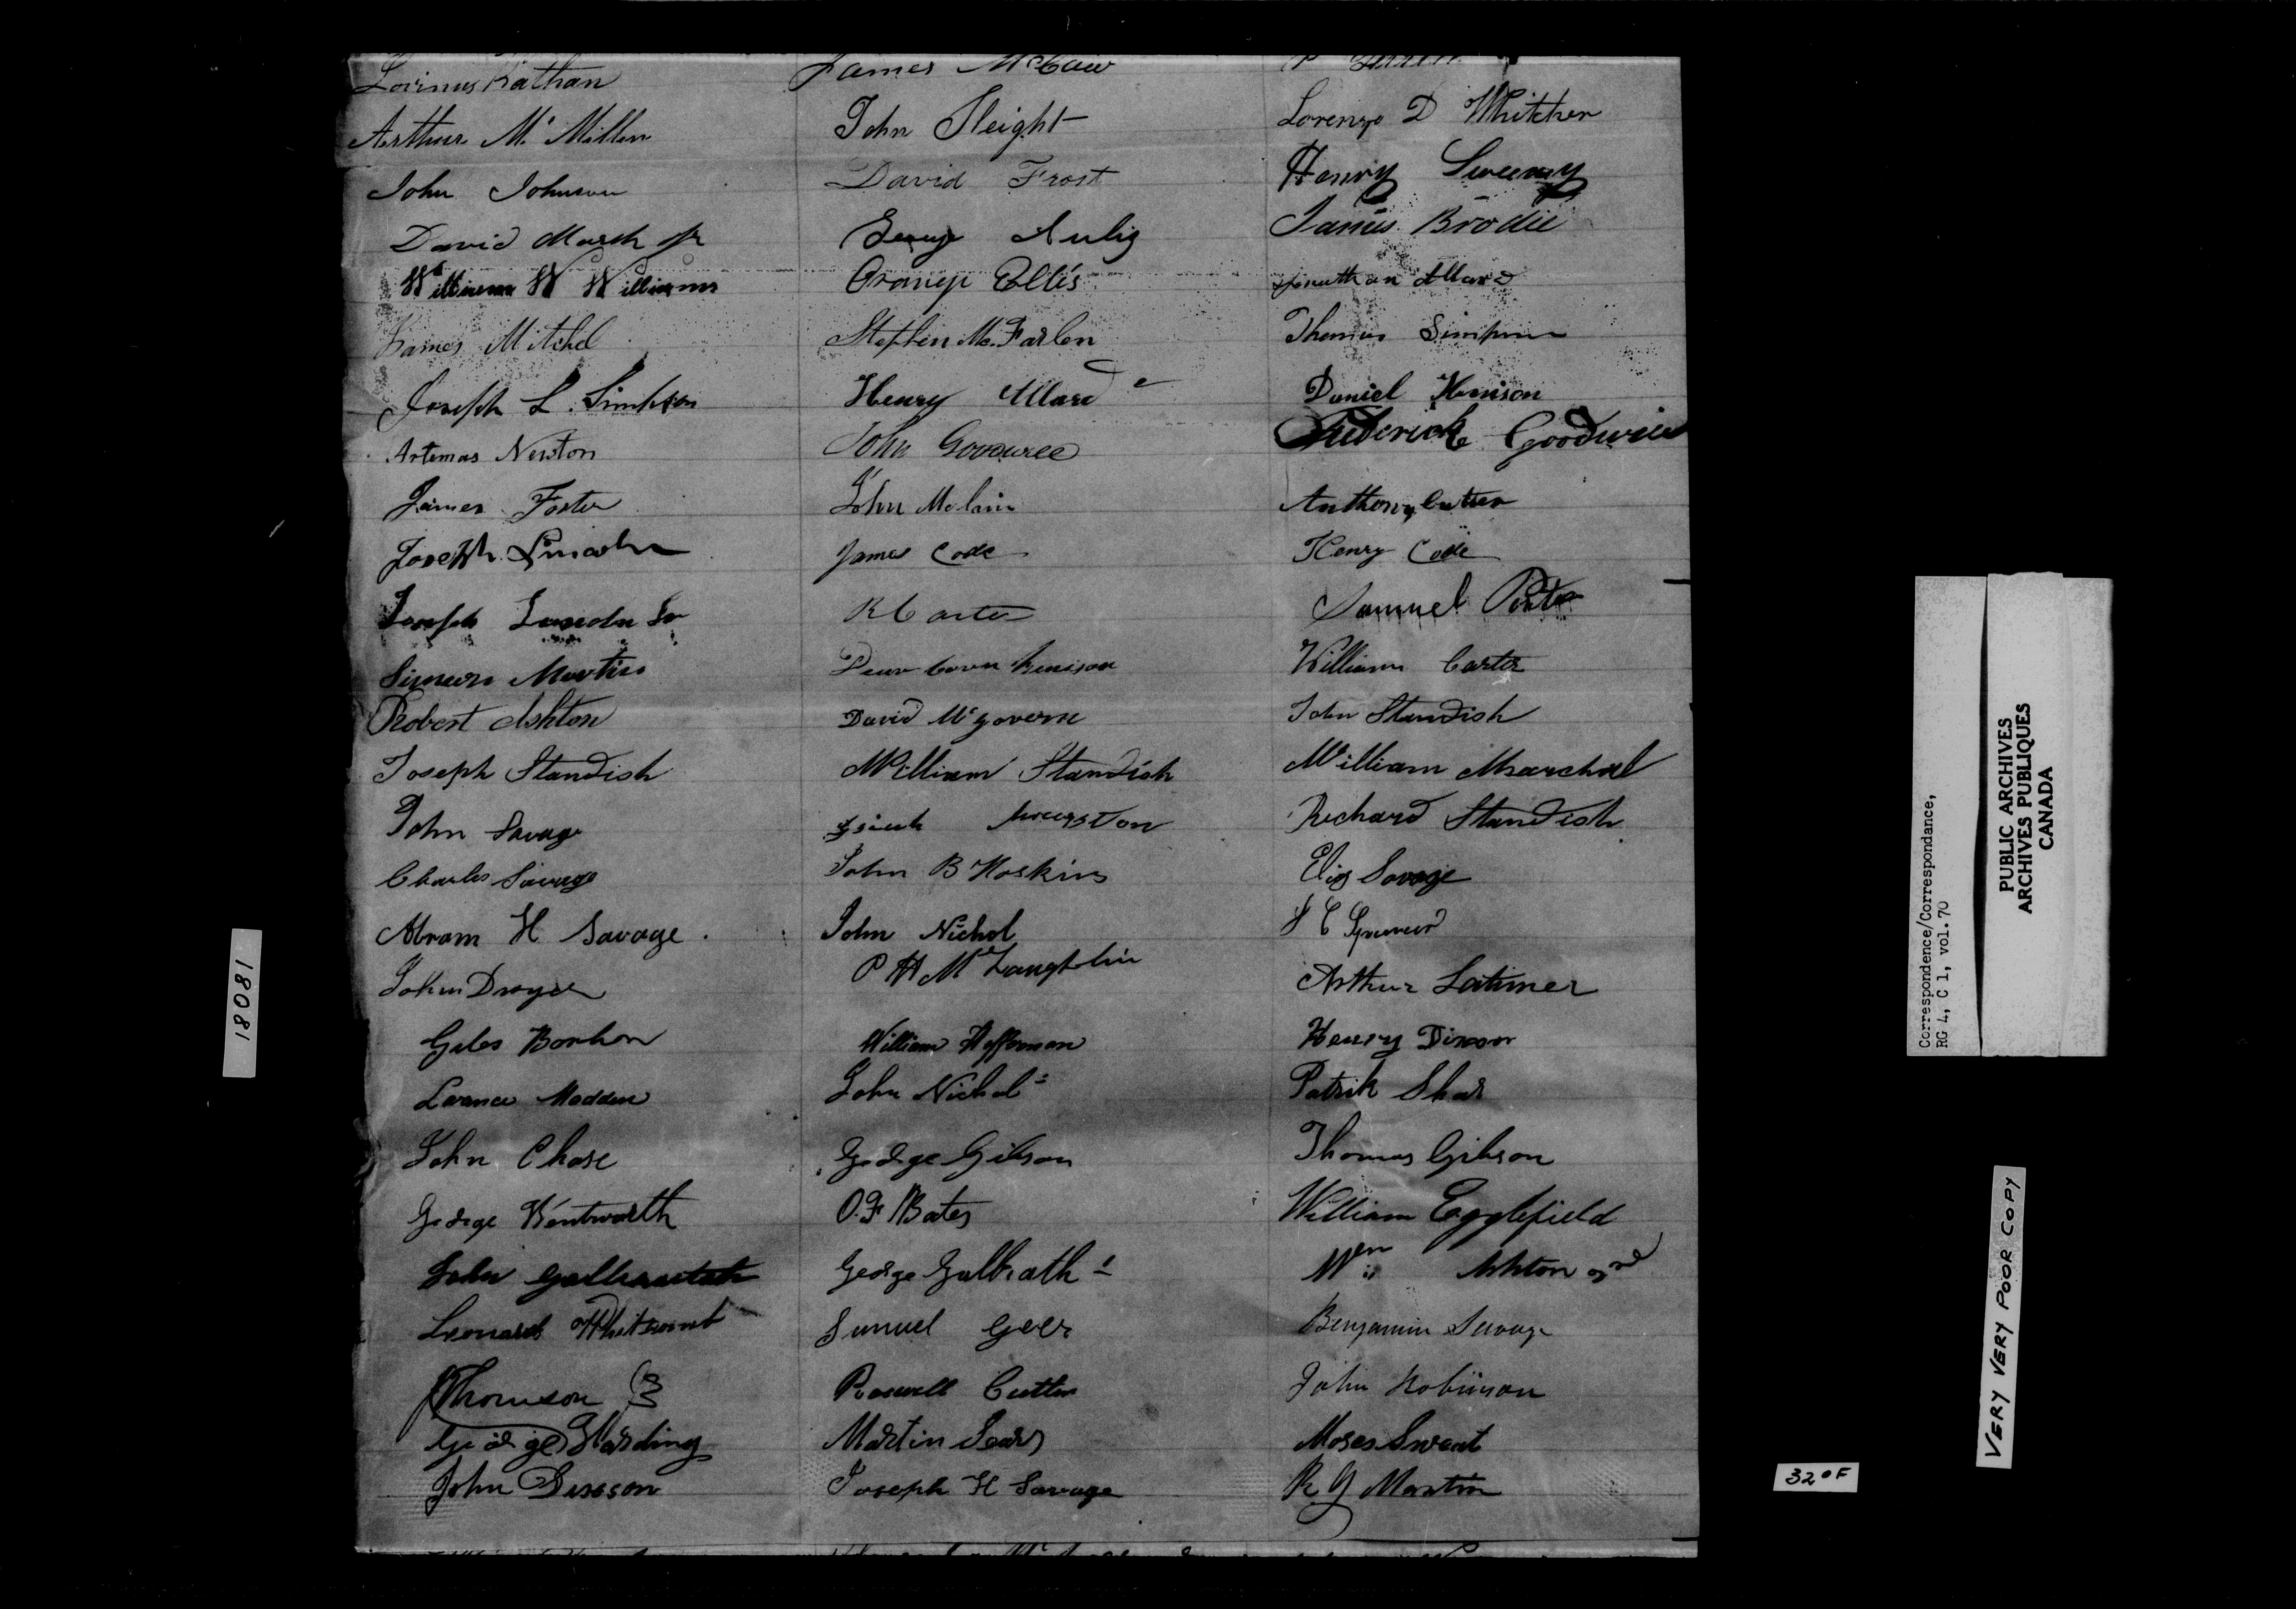 Lorinus Rathan
Arthur Mc Millen
John Johnson
David Marsh Jr
William W Williams
James Mitchel
Joseph L. Simpson
Artemas Newton
James Foster
Joseph Lincoln
Joseph Lincoln Sr
Simeon Martin
Robert Ashton
Joseph Standish
John Savage
Charles Savage
Abram H Savage.
John Dwyer
Giles
Lorance Madden
John Chase
George Wentworth
John
Leonard Whitcomb
Thomson
George Harding
John
James McCaw
John Sleight
David Frost
George
Orange Ellis
Stephen Mc.Farlen
Henry Allard
John
John
James Code
R Carter
Kenison
David McGovern
William Standish
John B Hoskins
John Nichol
P H McLaughlin
William Heffernan
John Nichol
George Gibson
O.F Bates
George Galbrath
Samuel Geer
Roswell Cutter
Martin Sears
Joseph H Savage
Lorenzo D Whitcher
Henry Sweeny
James Brodie
Jonathan Allard
Thomas Simpson
Daniel Kenison
Frederick Goodwin
Anthony Cutter
Henry Code
Samuel Porter
William Carter
John Standish
William Marchal
Richard Standish
Savage
Arthur Latimer
Henry Dixon
Patrik Shea
Thomas Gibson
William Egglefield
Wm Ashton 2nd
Benjamin Savage
John Robinson
Moses Sweat
R G Martin
18081
Correspondence/Correspondance,
RG 4, C 1, vol. 70
PUBLIC ARCHIVES
ARCHIVES PUBLIQUES
CANADA
VERY VERY POOR COPY
32ºF